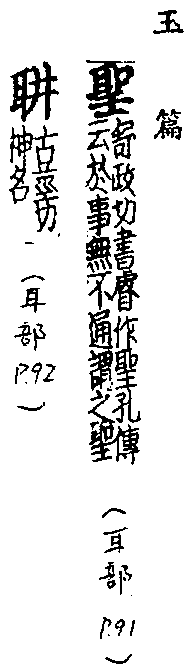 玉篇
聖 奇政切書睿作聖孔傳
云於事無不通謂之聖
(耳部 P.91)
耼 古巠切
神名
(耳部 P.92)